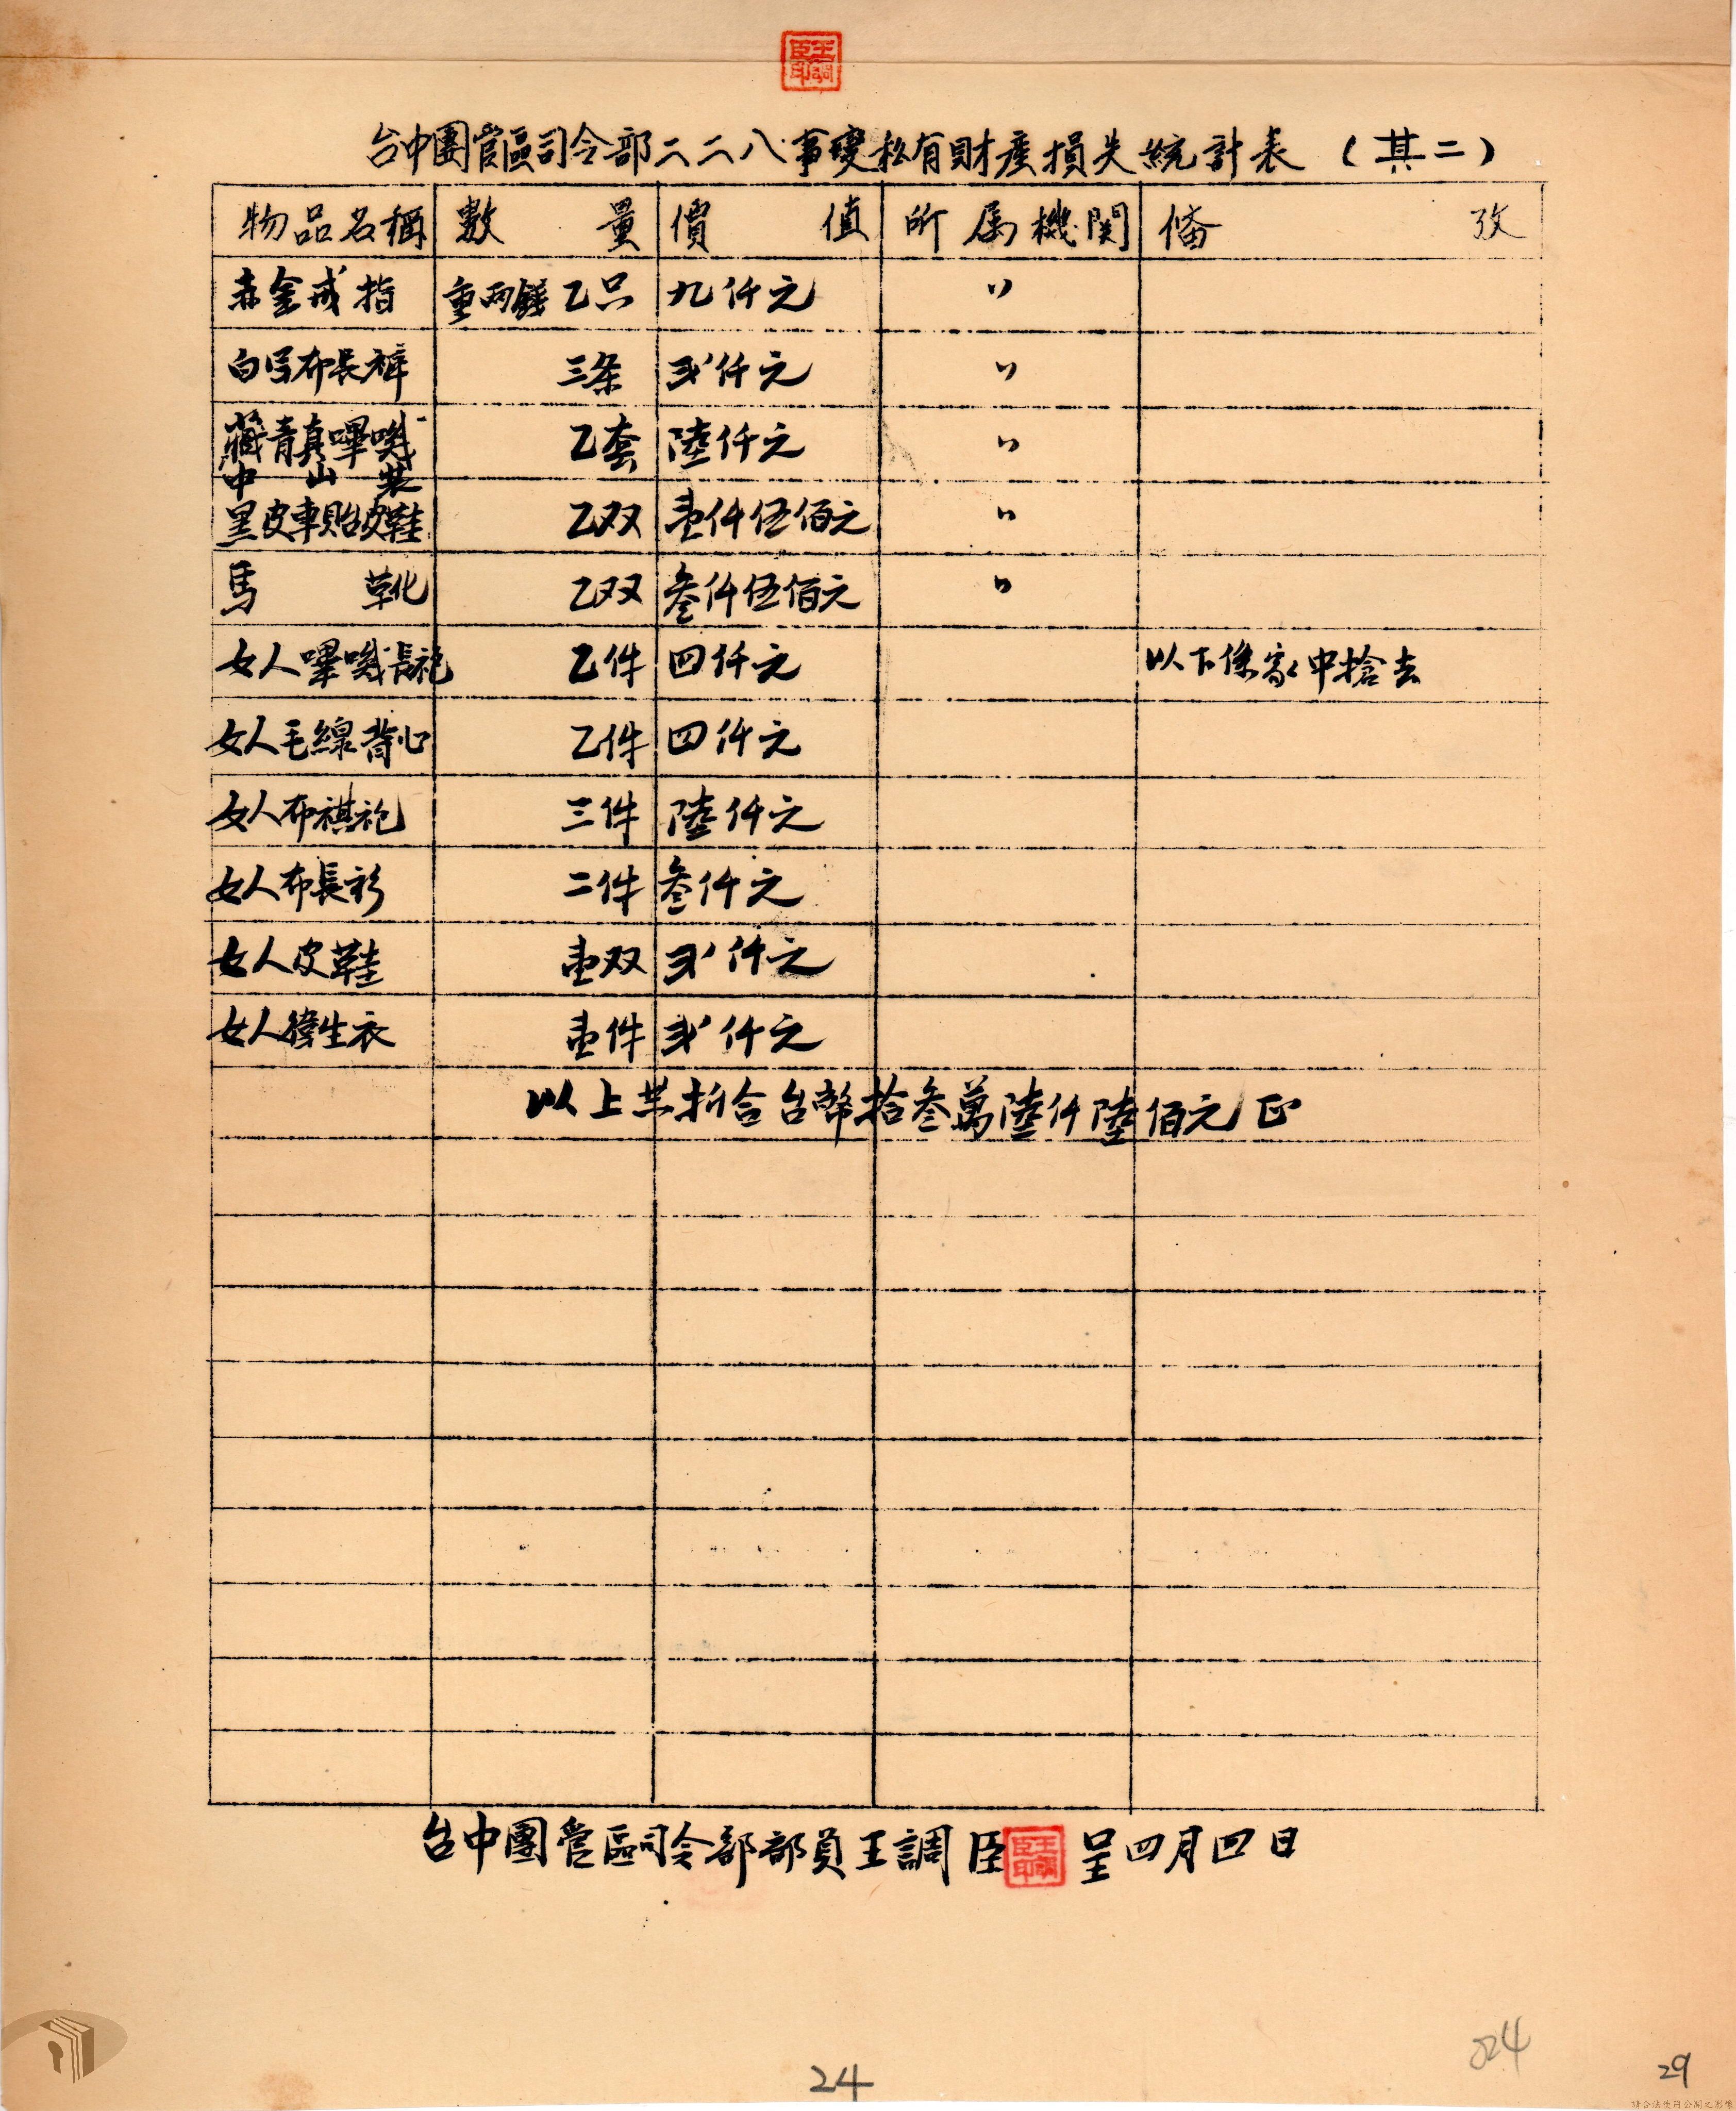 王調臣印
台中團管區司令部二二八事變私有財產損失統計表（其二）
物品名稱 數量 價值 所属機関 俻攷
赤金戒指 重兩錢乙只 九仟元 〃
白哔布長裤 三条 弍仟元 〃
藏青真嗶嘰中山装 乙套 陸仟元 〃
黑皮車貽皮鞋 乙双 壹仟伍佰元 〃
馬靴 乙双 叁仟伍佰元 〃
女人嗶嘰長袍 乙件 四仟元 以下係家中搶去
女人毛線背心 乙件 四仟元
女人布祺袍 三件 陸仟元
女人布長衫 二件 叁仟元
女人皮鞋 壹双 弍仟元
女人衛生衣 壹件 弍仟元
以上共折合台幣拾叁萬陸仟陸佰元正
台中團管區司令部部員王調臣 王調臣印 呈四月四日
024
24
29
請合法使用公開之影像